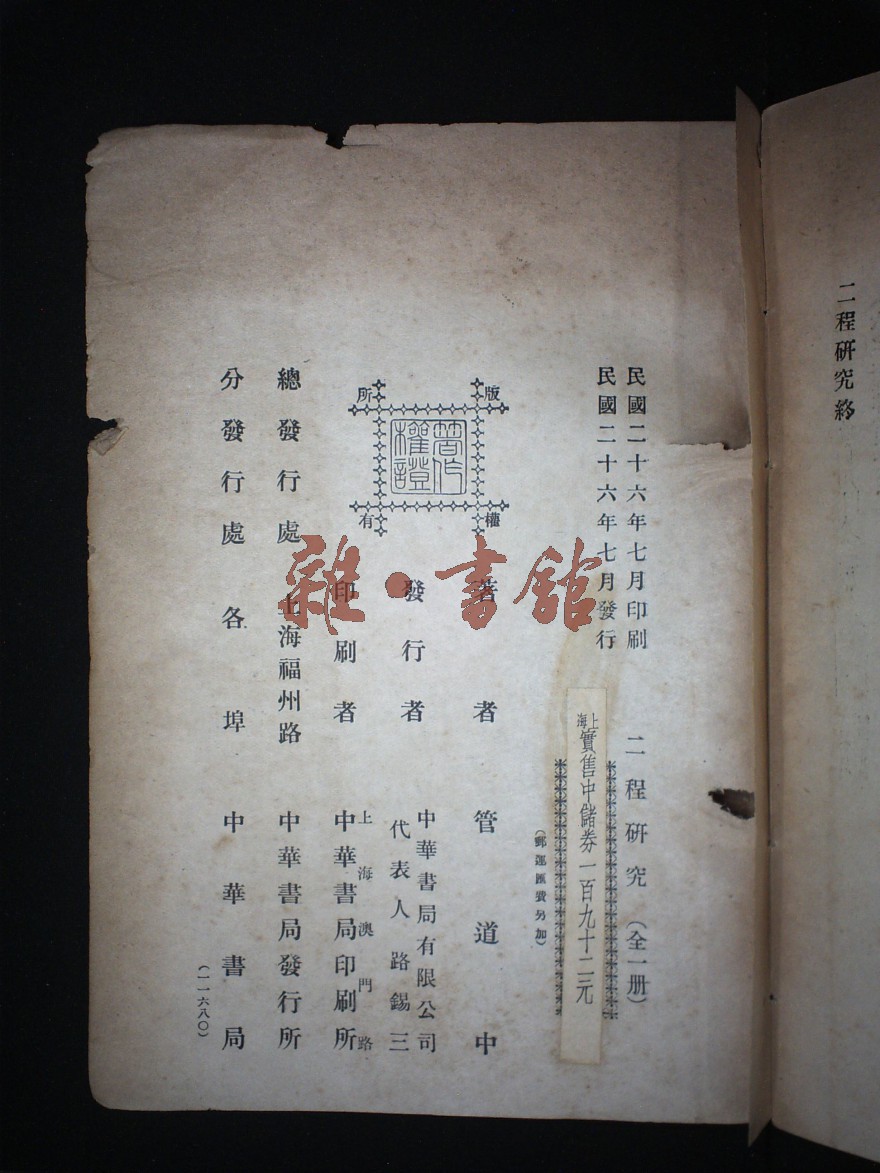 二程研究終
民國二十六年七月印刷
民國二十六年七月發行
二程研究(全一册)
上海實售中儲券一百九十二元
(郵運匯費另加)
版權所有
著作權證
著者 管道中
發行者 中華書局有限公司
代表人路錫三
印刷者 上海澳門路
中華書局印刷所
總發行處 上海福州路 中華書局發行所
分發行處 各埠 中華書局
(一一六八〇)
雜·書館